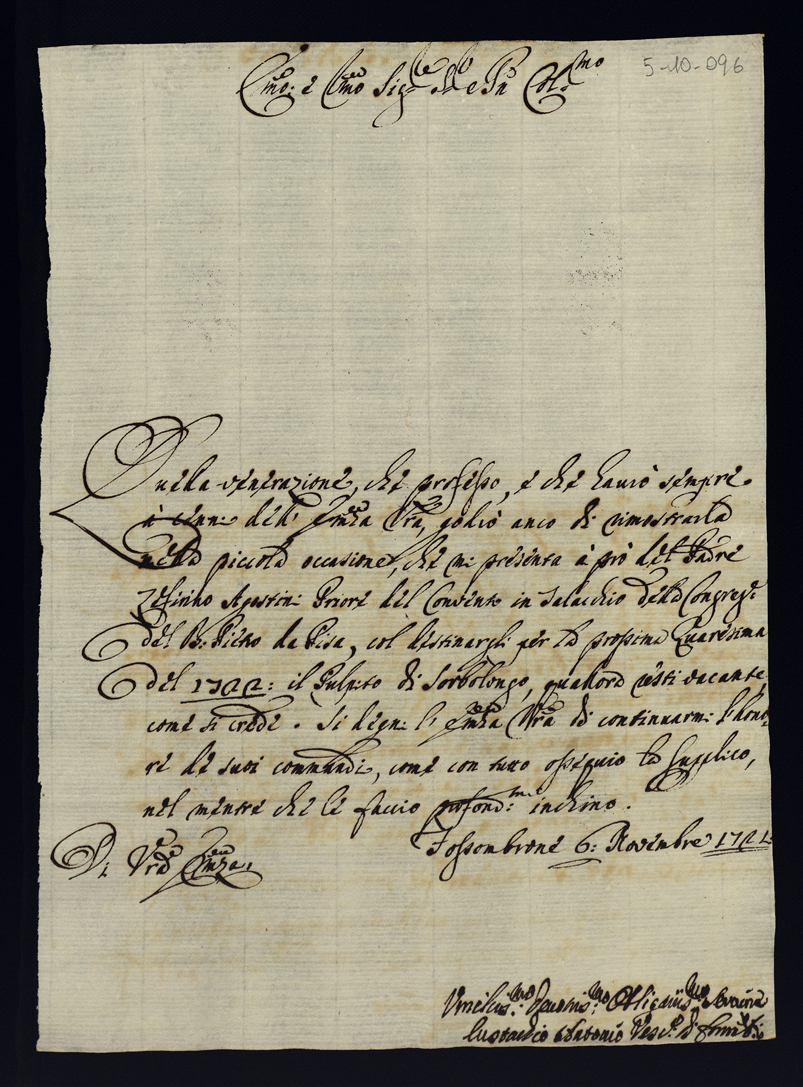 5-10-096
Em̃o: e Rm̃o Sig.re e Pñ Col.mo
Quella venerazione, che professo, e che haurò sempre
à cenni dell' Em̃za Vr̃a, godrò anco di rimostrarla
nella piccola occasione, che mi presenta à prò del Padre
Zefirino Agostini Priore del Convento in Talacchio della Congreg.e
del B: Pietro da Pisa, col destinargli per la prossima Quaresima
del 1722: il Pulpito di Sorbolongo, qualora resti vacante,
come si crede. Si degni l' Em̃za Vr̃a di continuarmi l'hono-
re de suoi commandi, come con tutto ossequio la supplico,
nel mentre che le faccio profond.me inchino.
Fossombrone 6: Novembre 1721:
Di Vr̃a Em̃za
Umiliss.mo Deuotis.mo Obligatis.mo Servitore
Eustachio Antonio Vesc.o di